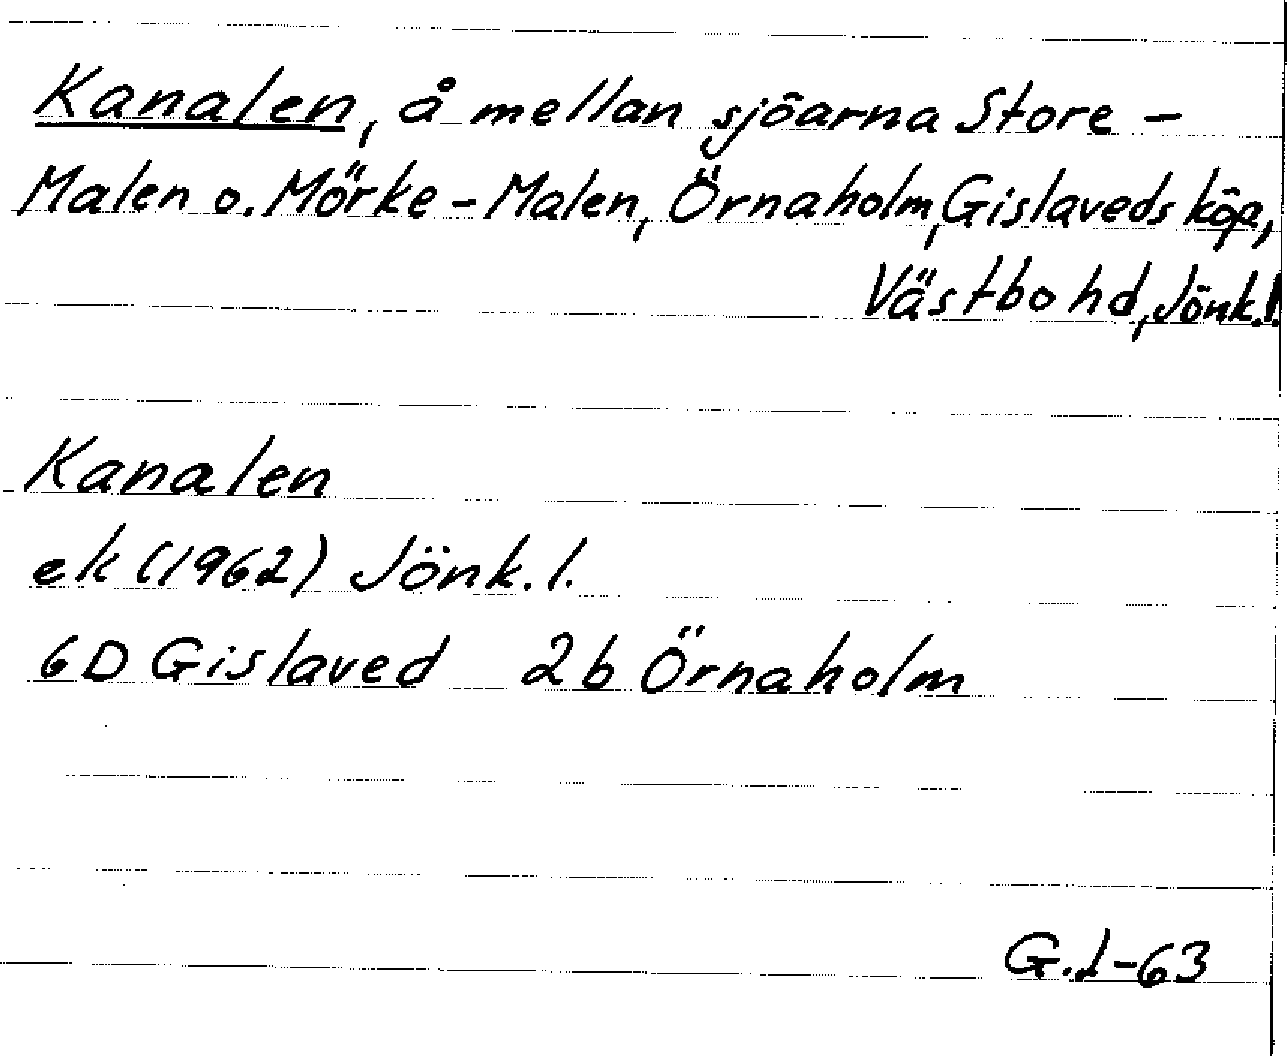 Kanalen, å mellan sjöarna Store-
Malen o. Mörke-Malen, Örnaholm, Gislaveds köp,
Västbo hd, Jönk.l.
Kanalen
ek (1962) Jönk.l.
6D Gislaved 2b Örnaholm
G.L-63